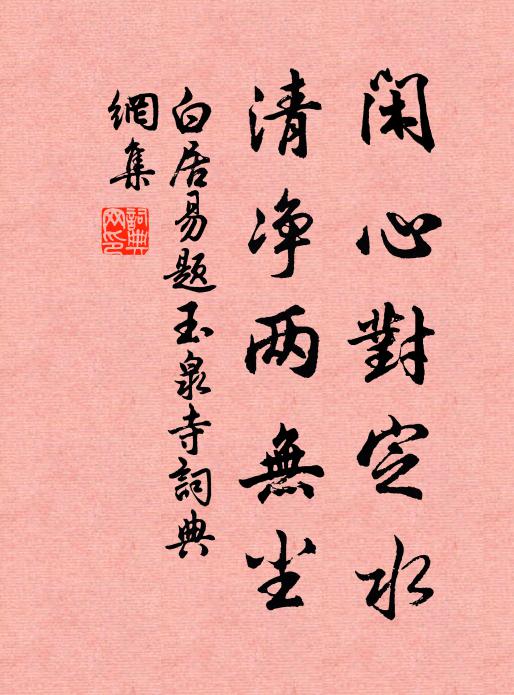 閑心對定水
清净两無尘
白居易题玉泉寺詞典
網集
詞典
网印